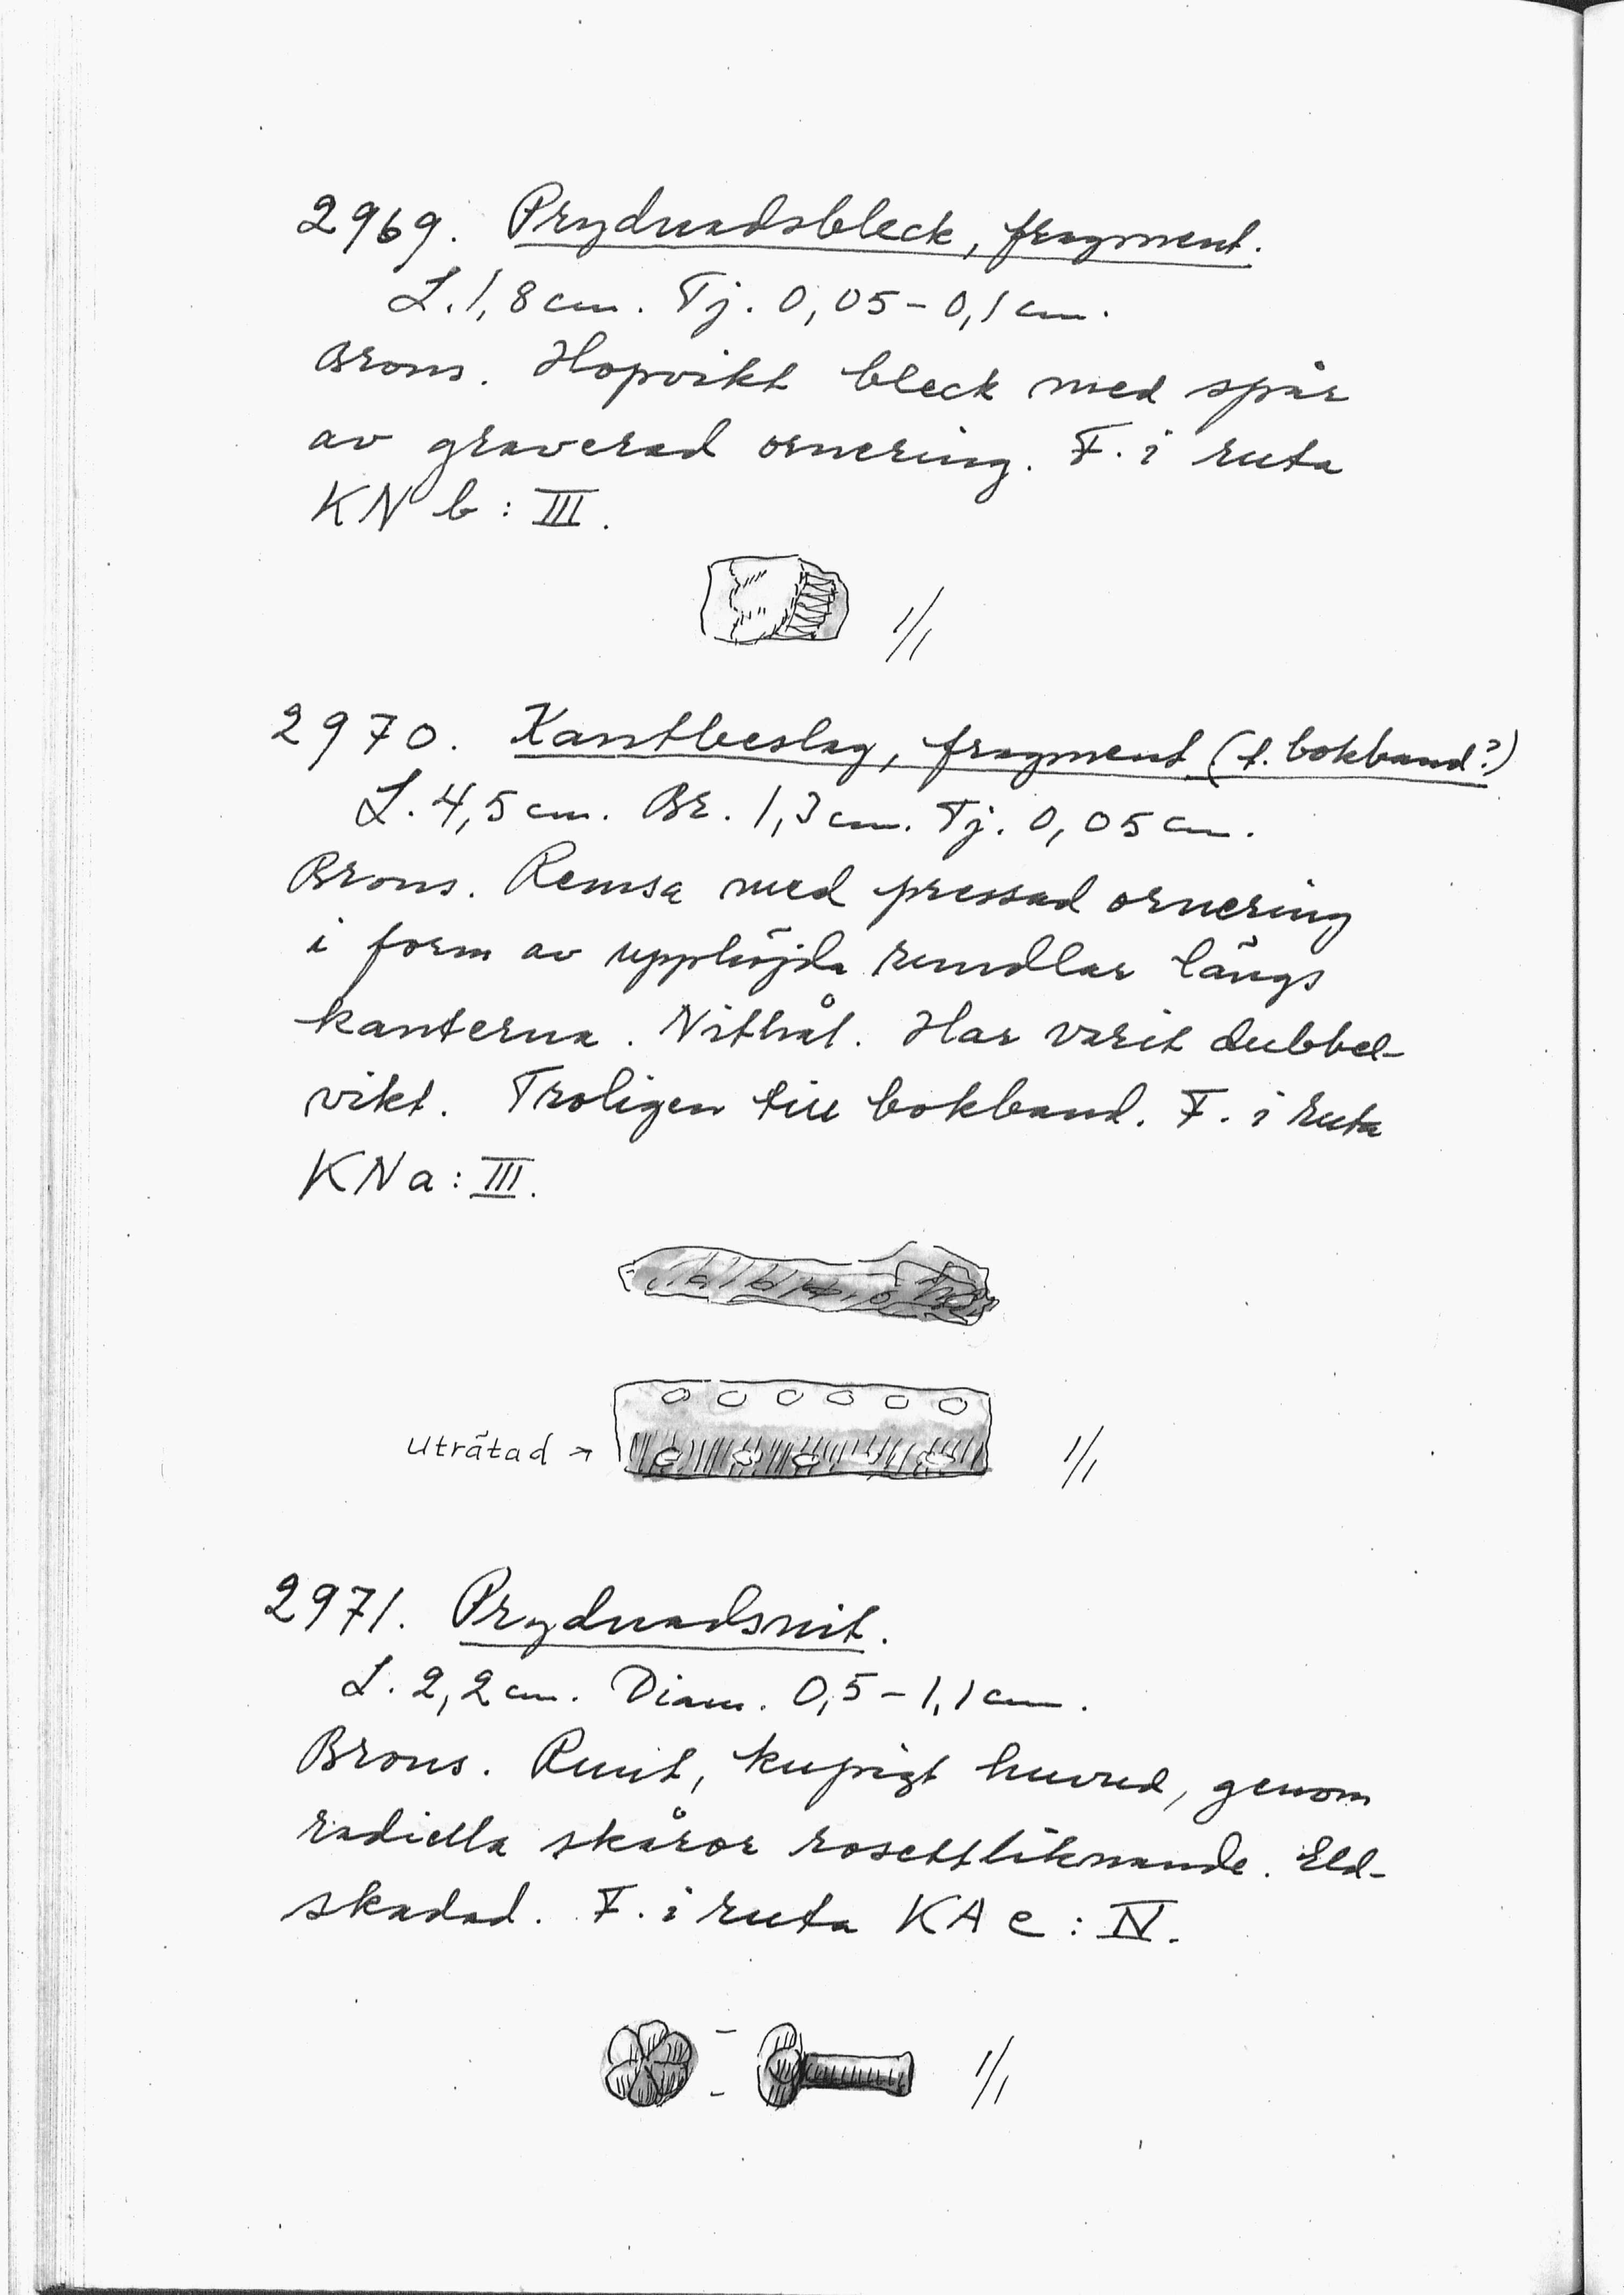 2969. Prydnadsbleck, fragment.
L. 1,8 cm. Tj. 0,05-0,1 cm.
Brons. Hopvikt bleck med spår
av graverad ornering. F. i ruta
KN b : III.
1/1
2970. Kantbeslag, fragment (t. bokband?)
L. 4,5 cm. Br. 1,3 cm. Tj. 0,05 cm.
Brons. Remsa med pressad ornering
i form av upphöjda rundlar längs
kanterna. Nithål. Har varit dubbel-
vikt. Troligen till bokband. F. i ruta
KN a : III.
uträtad →
1/1
2971. Prydnadsnit.
L. 2,2 cm. Diam. 0,5-1,1 cm.
Brons. Runt, kupigt huvud, genom
radiella skåror rosettliknande. Eld-
skadad. F. i ruta KA e : IV.
1/1